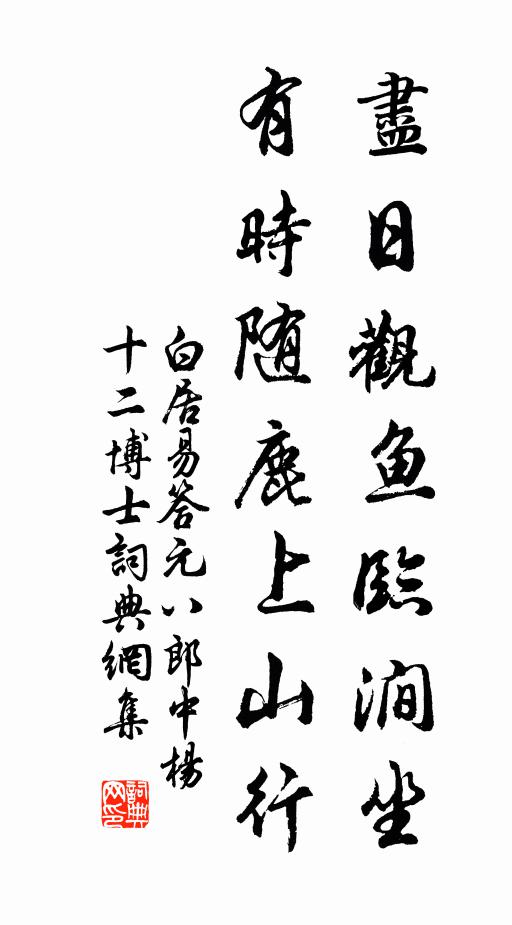 盡日觀魚臨澗坐
有時随鹿上山行
白居易答元八郎中楊
十二博士詞典網集
詞典
网印